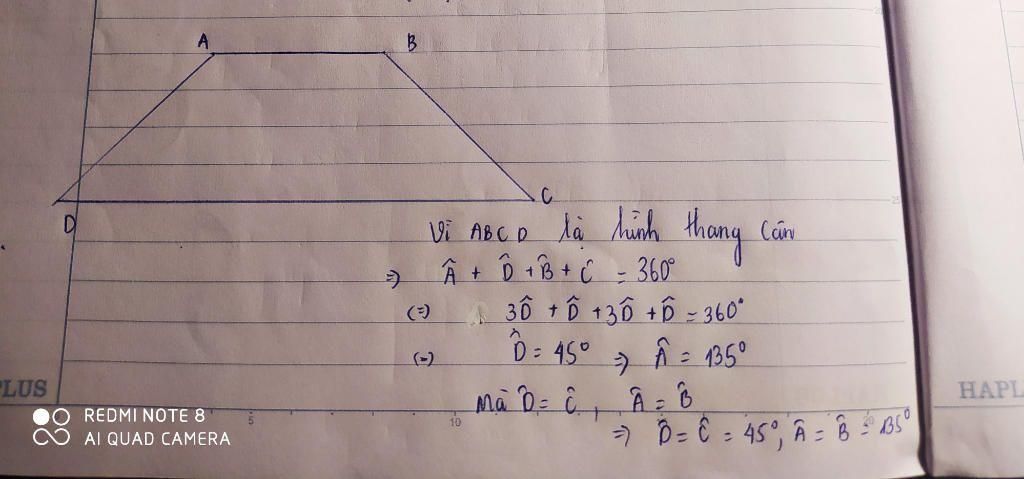 A B
D C
Vì ABCD là hình thang cân
=> Â + D̂ + B̂ + Ĉ = 360°
(=) 3D̂ + D̂ + 3D̂ + D̂ = 360°
(=) D̂ = 45° => Â = 135°
Mà D̂ = Ĉ, Â = B̂
=> D̂ = Ĉ = 45°, Â = B̂ = 135°
PLUS
HAPL
REDMI NOTE 8
AI QUAD CAMERA
5 10 20
25